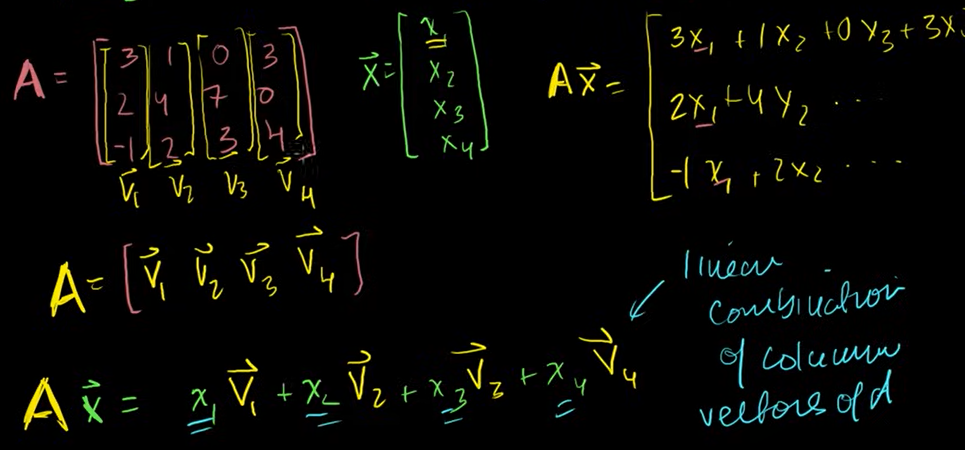 A = [ 3 1 0 3
2 4 7 0
-1 2 3 4 ]
v⃗₁ v⃗₂ v⃗₃ v⃗₄
x⃗ = [ x₁
x₂
x₃
x₄ ]
A x⃗ = [ 3x₁ + 1x₂ + 0x₃ + 3x
2x₁ + 4x₂ ...
-1x₁ + 2x₂ ... ]
A = [ v⃗₁ v⃗₂ v⃗₃ v⃗₄ ]
A x⃗ = x₁ v⃗₁ + x₂ v⃗₂ + x₃ v⃗₃ + x₄ v⃗₄
linear
combination
of column
vectors of A